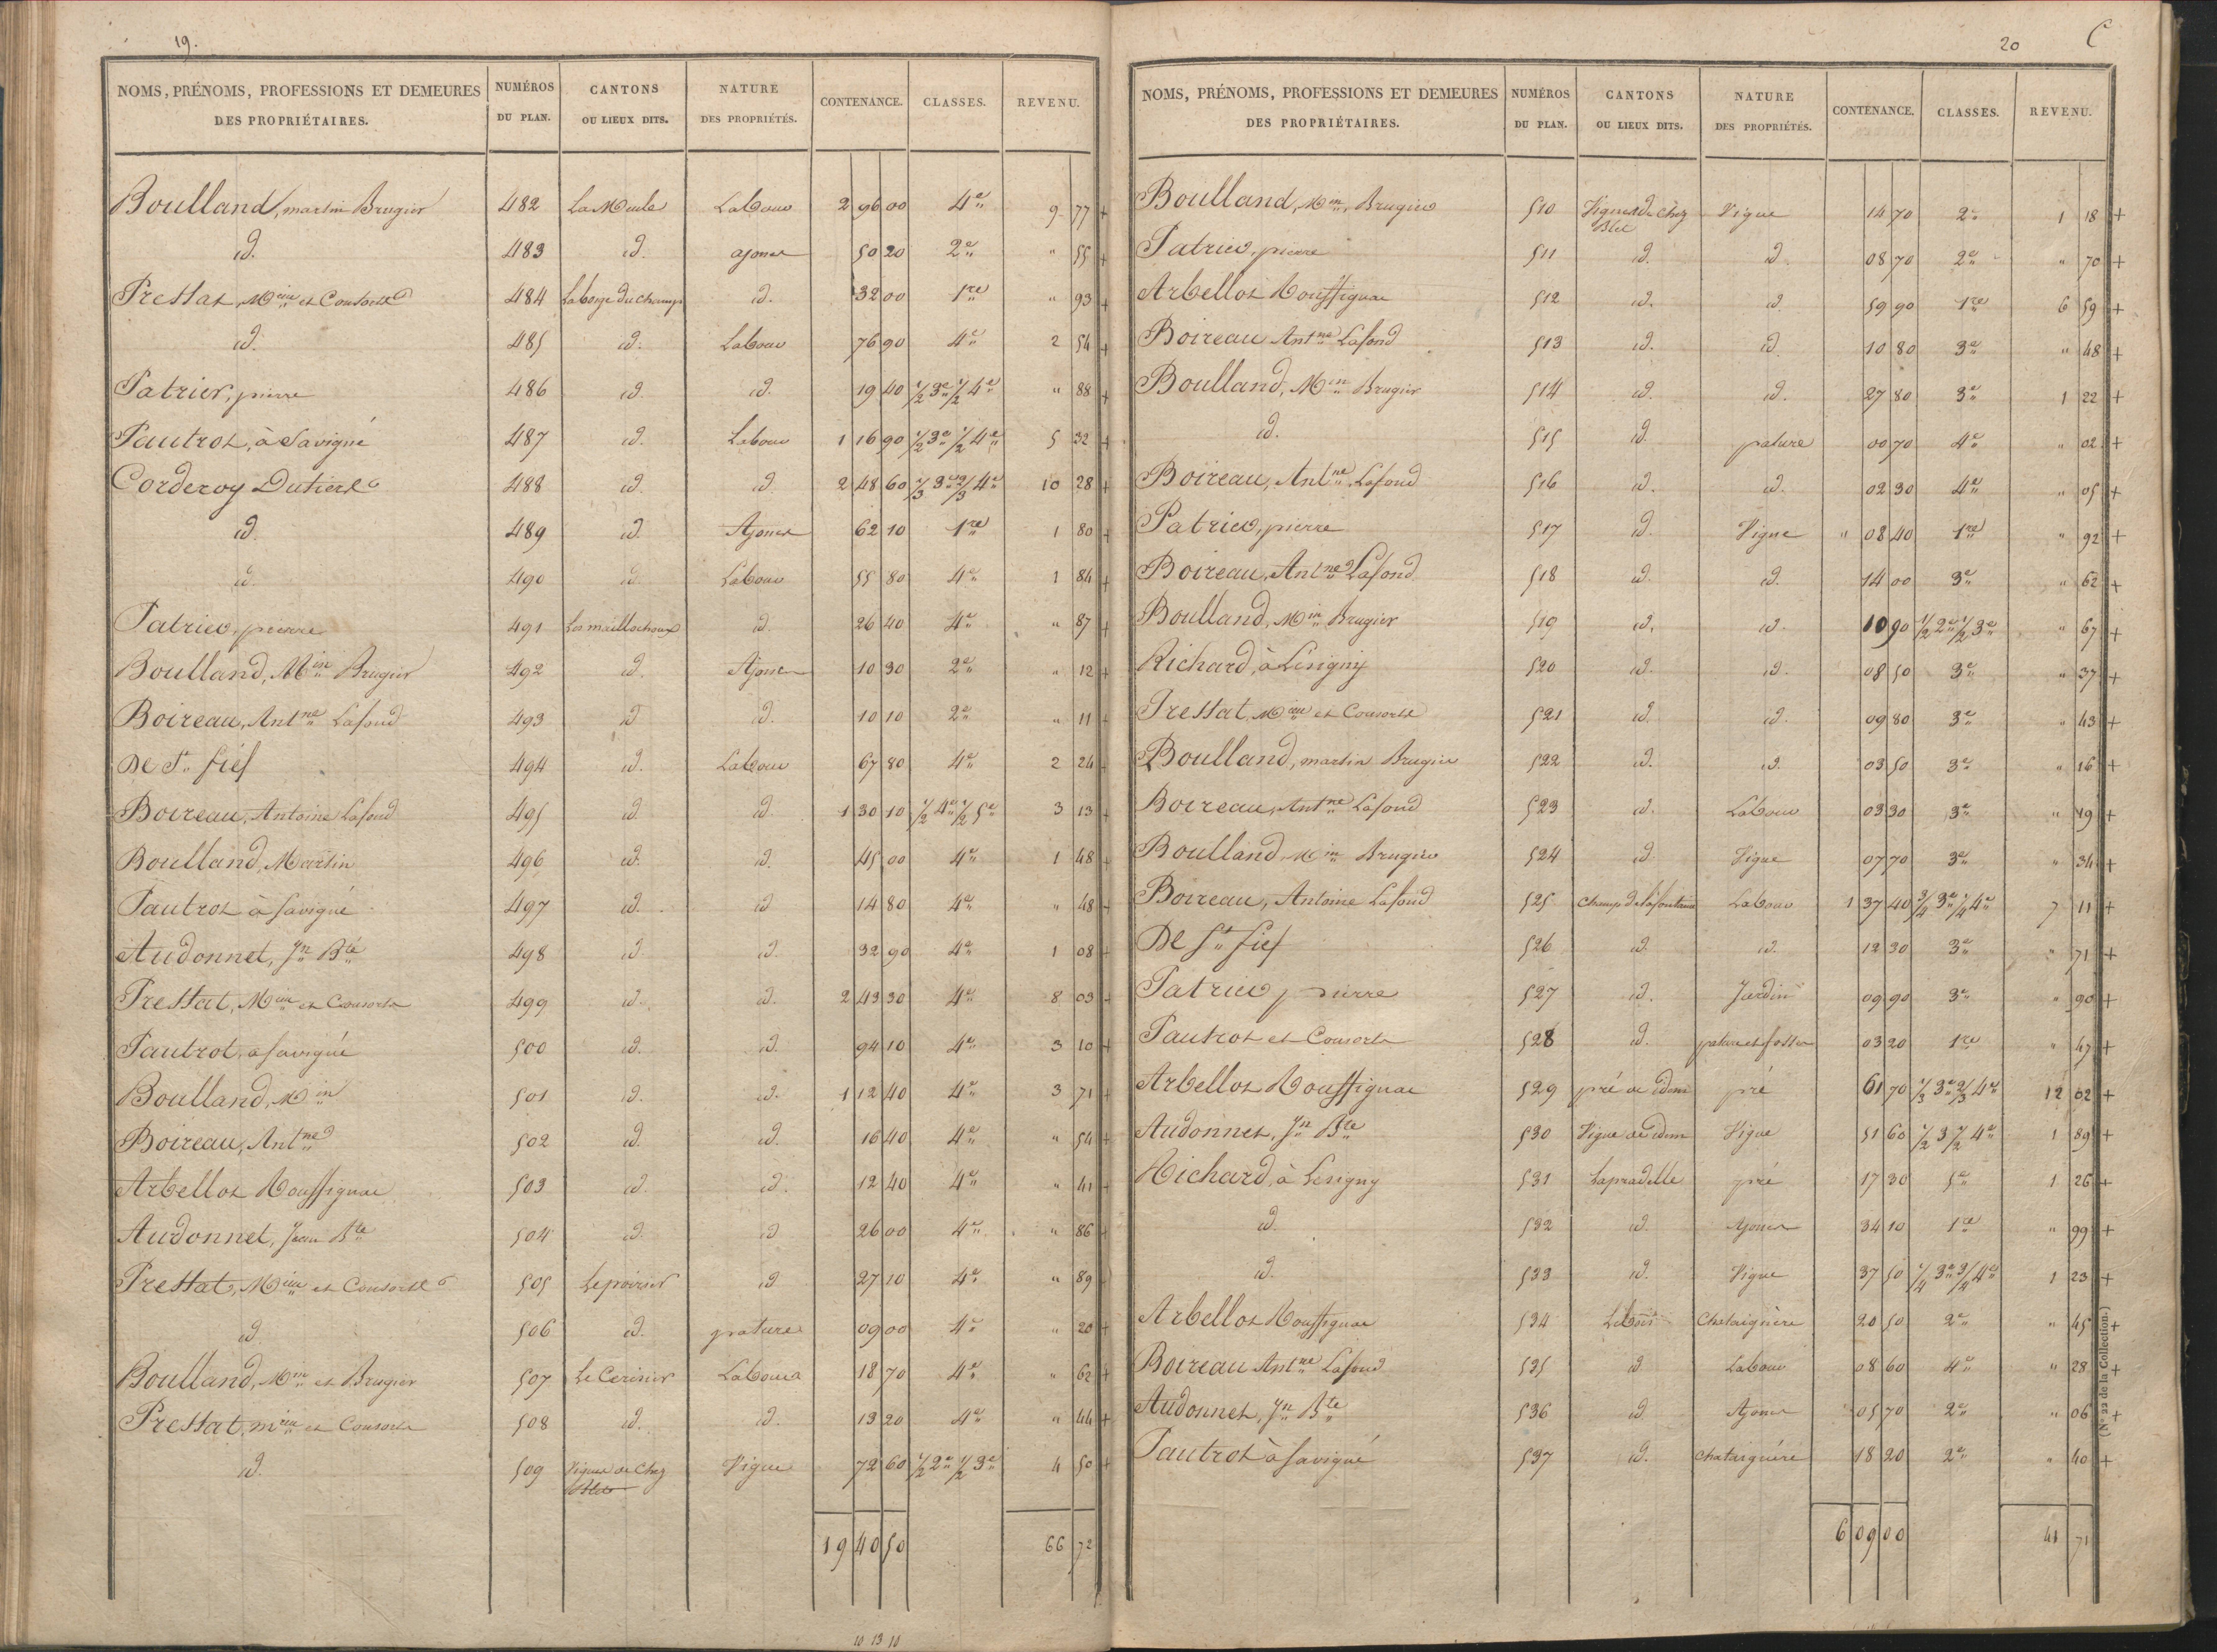 19.
NOMS, PRÉNOMS, PROFESSIONS ET DEMEURES DES PROPRIÉTAIRES. NUMÉROS DU PLAN. CANTONS OU LIEUX DITS. NATURE DES PROPRIÉTÉS. CONTENANCE. CLASSES. REVENU.
Boulland, martin Brugier 482 Labour 2 96 00 4e 9 77 +
id. 483 id. ajonc 50 20 2e " 55 +
Prestat, Mein et Consorts 484 id. 32 00 1re " 93 +
id. 485 id. Labour 76 90 4e 2 54 +
Patrier, pierre 486 id. id. 19 40 1/2 3e 1/2 4e " 88 +
Pautrot, à Savigné 487 id. Labour 1 16 90 1/2 3e 1/2 4e 5 32 +
Corderoy Dutiers 488 id. id. 2 48 60 1/3 3e 2/3 4e 10 28 +
id. 489 id. Ajonc 62 10 1re 1 80 +
id. 490 id. Labour 55 80 4e 1 84 +
Patrier, pierre 491 id. 26 40 4e " 87 +
Boulland, Min Brugier 492 id. Ajonc 10 30 2e " 12 +
Boireau, Antne Lafond 493 id. id. 10 10 2e " 11 +
De St fief 494 id. Labour 67 80 4e 2 24 +
Boireau, Antoine Lafond 495 id. id. 1 30 10 1/2 4e 1/2 5e 3 13 +
Boulland, Martin 496 id. id. 45 00 4e 1 48 +
Pautrot à Savigné 497 id. id. 14 80 4e " 48 +
Audonnet, Jn Bte 498 id. id. 32 90 4e 1 08 +
Prestat, Mein et Consorts 499 id. id. 2 43 30 4e 8 03 +
Pautrot, à Savigné 500 id. id. 94 10 4e 3 10 +
Boulland, Min 501 id. id. 1 12 40 4e 3 71 +
Boireau, Antne 502 id. id. 16 40 4e " 54 +
Arbellot Rouffignac 503 id. id. 12 40 4e " 41 +
Audonnet, Jean Bte 504 id. id. 26 00 4e " 86 +
Prestat, Mein et Consorts 505 Le poirier id. 27 10 4e " 89
id. 506 id. pature 09 00 4e " 20 +
Boulland, Min et Brugier 507 Le Cerisier Labour 18 70 4e " 62 +
Prestat, mein et Consorts 508 id. id. 13 20 4e " 44 +
id. 509 Vignes de Chez Blet Vigne 72 60 1/2 2e 1/2 3e 4 50 +
19 40 50 66 72
10 13 10
20 C
NOMS, PRÉNOMS, PROFESSIONS ET DEMEURES DES PROPRIÉTAIRES. NUMÉROS DU PLAN. CANTONS OU LIEUX DITS. NATURE DES PROPRIÉTÉS. CONTENANCE. CLASSES. REVENU.
Boulland, Min, Brugier 510 Vignes de Chez Blet Vigne 14 70 2e 1 18 +
Patrier, pierre 511 id. id. 08 70 2e " 70 +
Arbellot Rouffignac 512 id. id. 59 90 1re 6 59 +
Boireau Antne Lafond 513 id. id. 10 80 3e " 48 +
Boulland, Min Brugier 514 id. id. 27 80 3e 1 22 +
id. 515 id. pature 00 70 4e " 02 +
Boireau, Antne Lafond 516 id. id. 02 30 4e " 05 +
Patrier, pierre 517 id. Vigne " 08 40 1re " 92 +
Boireau, Antne Lafond 518 id. id. 14 00 3e " 62 +
Boulland, Min Brugier 519 id. id. 10 90 1/2 2e 1/2 3e " 67 +
Richard, à Lésigny 520 id. id. 08 50 3e " 37 +
Prestat, Mein et Consorts 521 id. id. 09 80 3e " 43 +
Boulland, martin Brugier 522 id. id. 03 50 3e " 16 +
Boireau, Antne Lafond 523 id. Labour 03 30 3e " 19 +
Boulland, Min Brugier 524 id. Vigne 07 70 3e " 34 +
Boireau, Antoine Lafond 525 Champ de la fontaine Labour 1 37 40 3/4 3e 1/4 4e 7 11 +
De St fief 526 id. id. 12 30 3e " 71 +
Patrier, pierre 527 id. Jardin 09 90 3e " 90 +
Pautrot et Consorts 528 id. pature et fosse 03 20 1re " 47 +
Arbellot Rouffignac 529 pré de idem pré 61 70 1/3 3e 2/3 4e 12 02 +
Audonnet, Jn Bte 530 Vigne de idem Vigne 51 60 1/2 3 1/2 4e 1 89 +
Richard, à Lésigny 531 Lapradelle pré 17 30 5e 1 26 +
id. 532 id. Ajonc 34 10 1re " 99 +
id. 533 id. Vigne 37 50 1/4 3e 3/4 4e 1 23 +
Arbellot Rouffignac 534 Le Bois Chataignière 20 50 2e " 45 +
Boireau Antne Lafond 535 id. Labour 08 60 4e " 28 +
Audonnet, Jn Bte 536 id. Ajonc 05 70 2e " 06 +
Pautrot à Savigné 537 id. Chataignière 18 20 2e " 40 +
6 09 00 41 71
(No 22 de la Collection.)